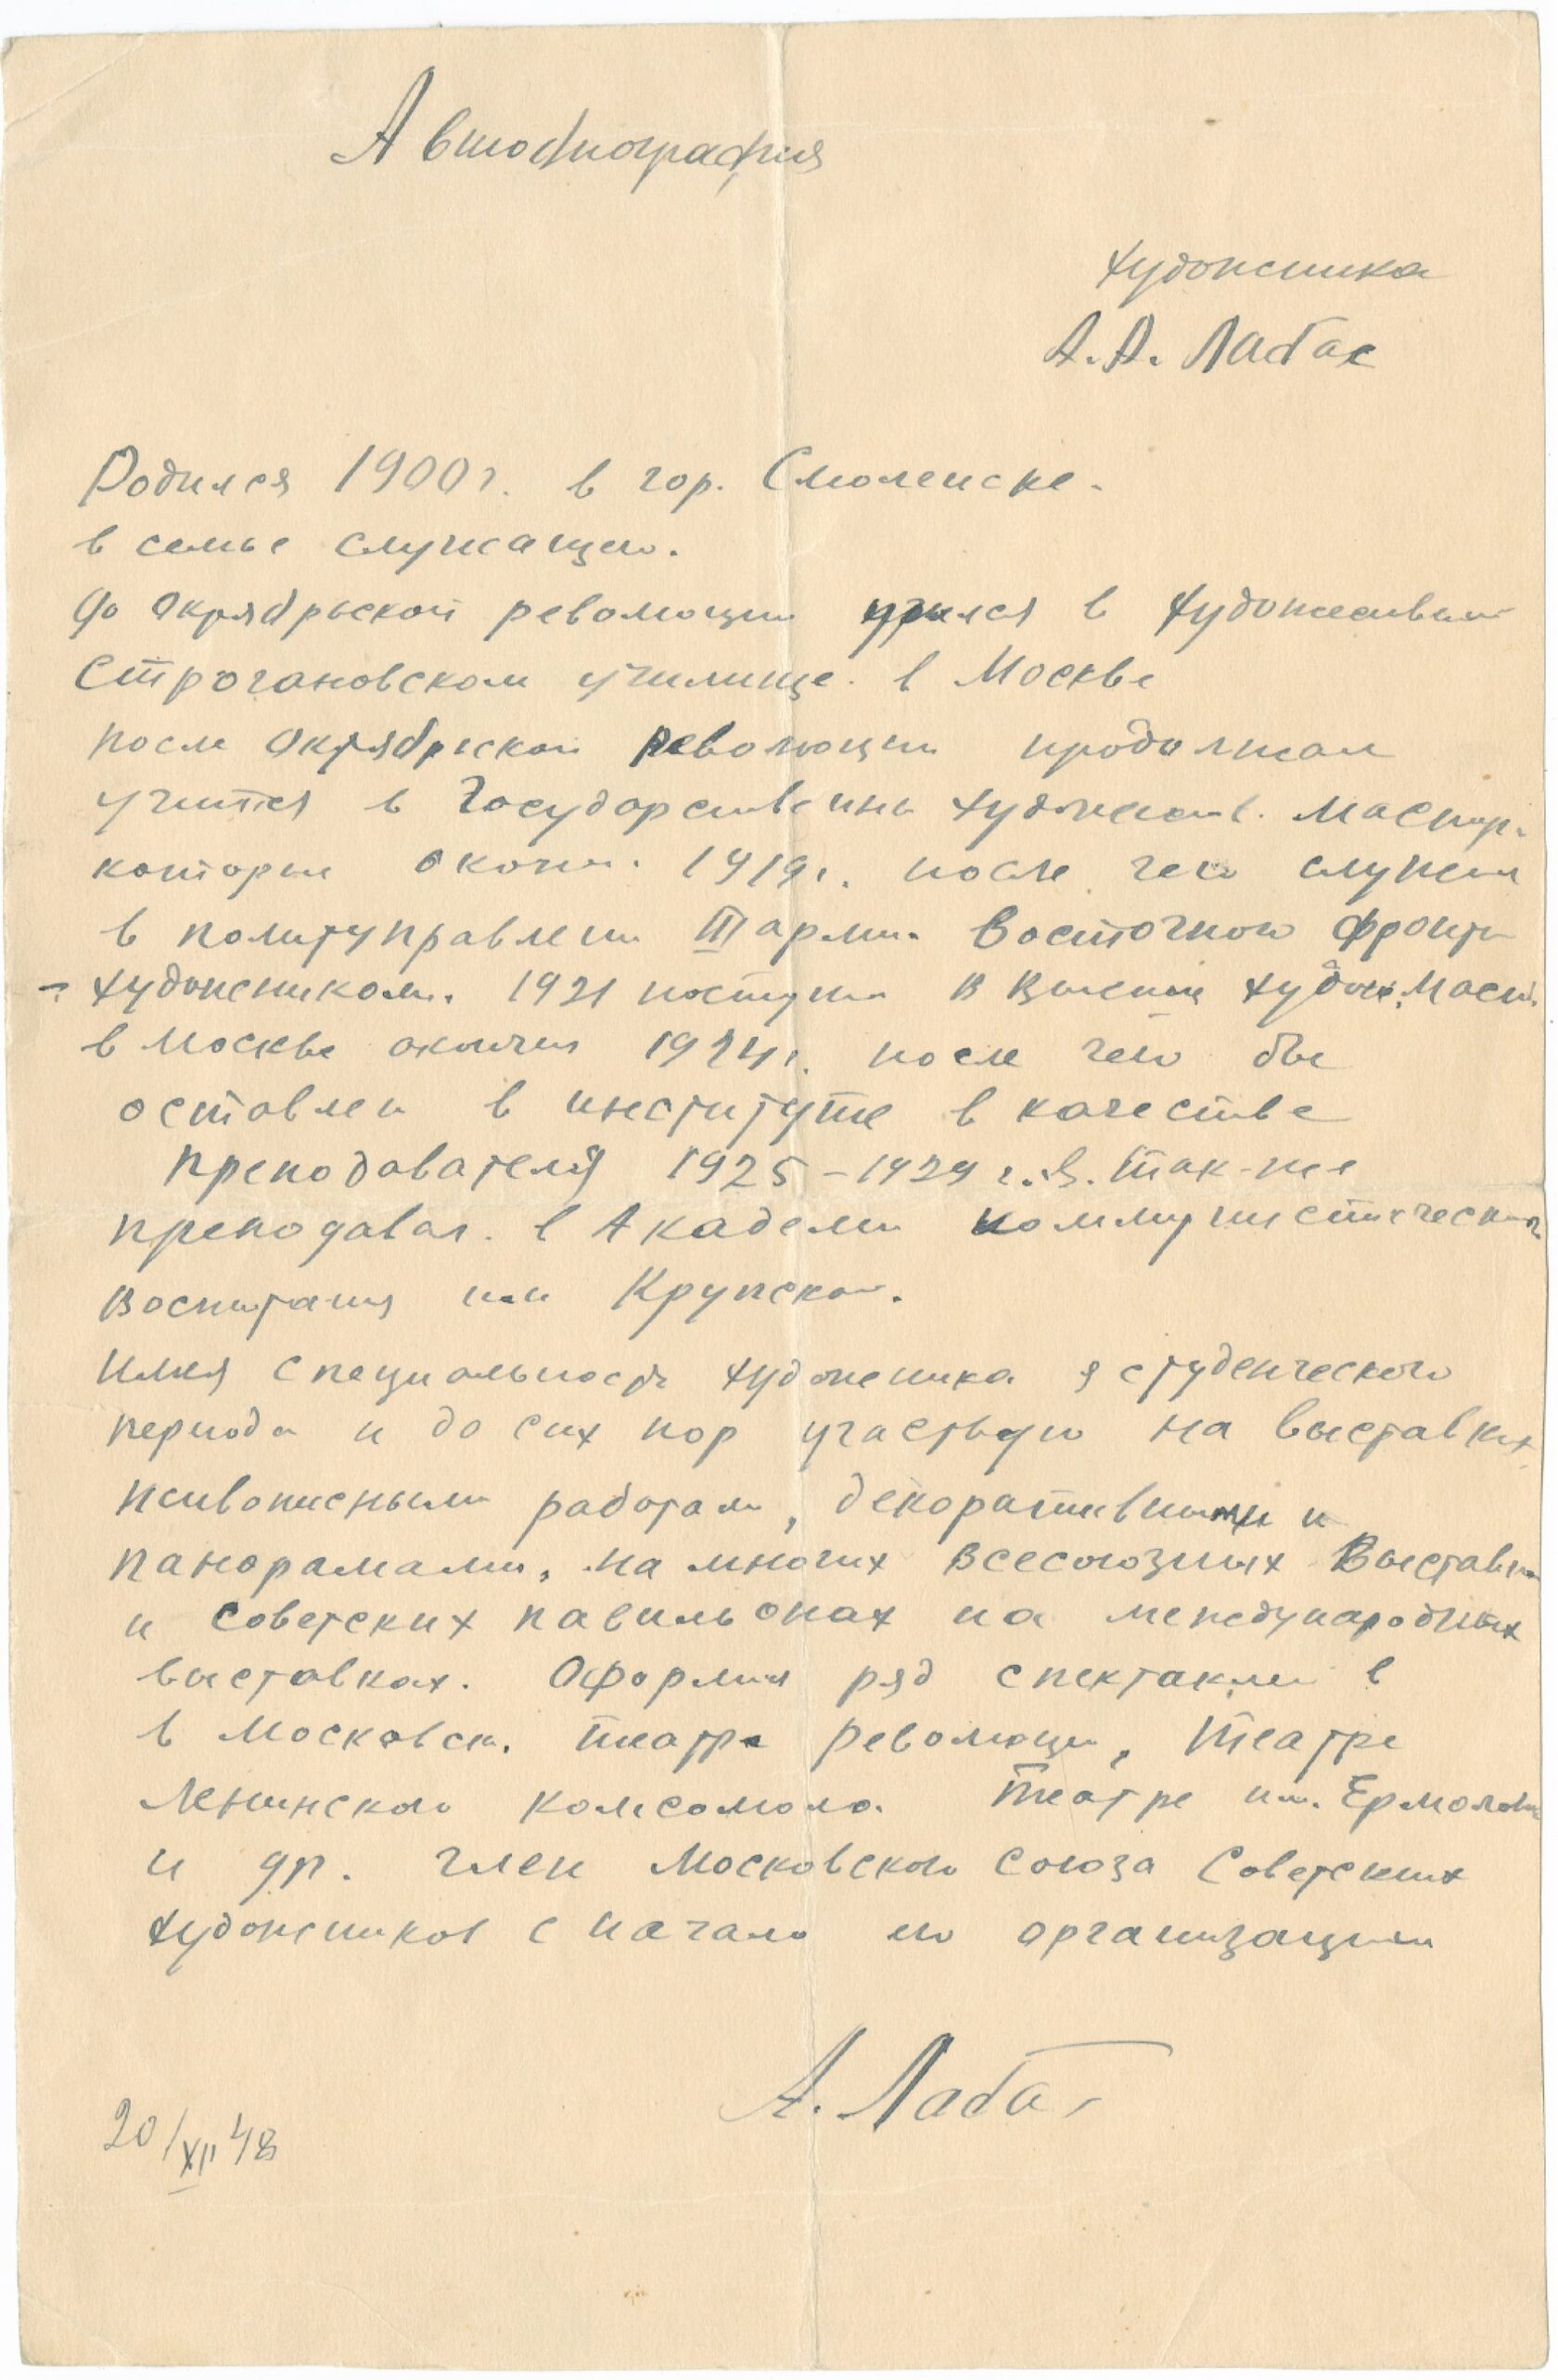 Автобиография
художника
А.А. Лабас
Родился 1900 г. в гор. Смоленске.
в семье служащего.
До Октябрьской революции учился в художественном
Строгановском училище. в Москве
после Октябрьской революции продолжал
учится в Государственны художеств. мастер.
которые окончил. 1919 г. после чего служил
в политуправлении III армии. Восточного фронта
художником. 1921 поступил в Высшие худож. Маст.
в Москве окончил 1924 г. после чего был
оставлен в институте в качестве
преподавателя 1925 – 1929 г. Так-же
преподавал. в Академии коммунистического
воспитания им Крупской.
Имея специальность художника с студенческого
периода и до сих пор участвую на выставках
живописными работами, декоративными и
панорамами, на многих всесоюзных Выставках
и советских павильонах на международных
выставках. Оформил ряд спектаклей в
в Московск. театре революции, Театре
Ленинского комсомола. Театре им. Ермоловой
и др. член Московского союза Советских
художников с начало его организации
А. Лабас
20/XII 48